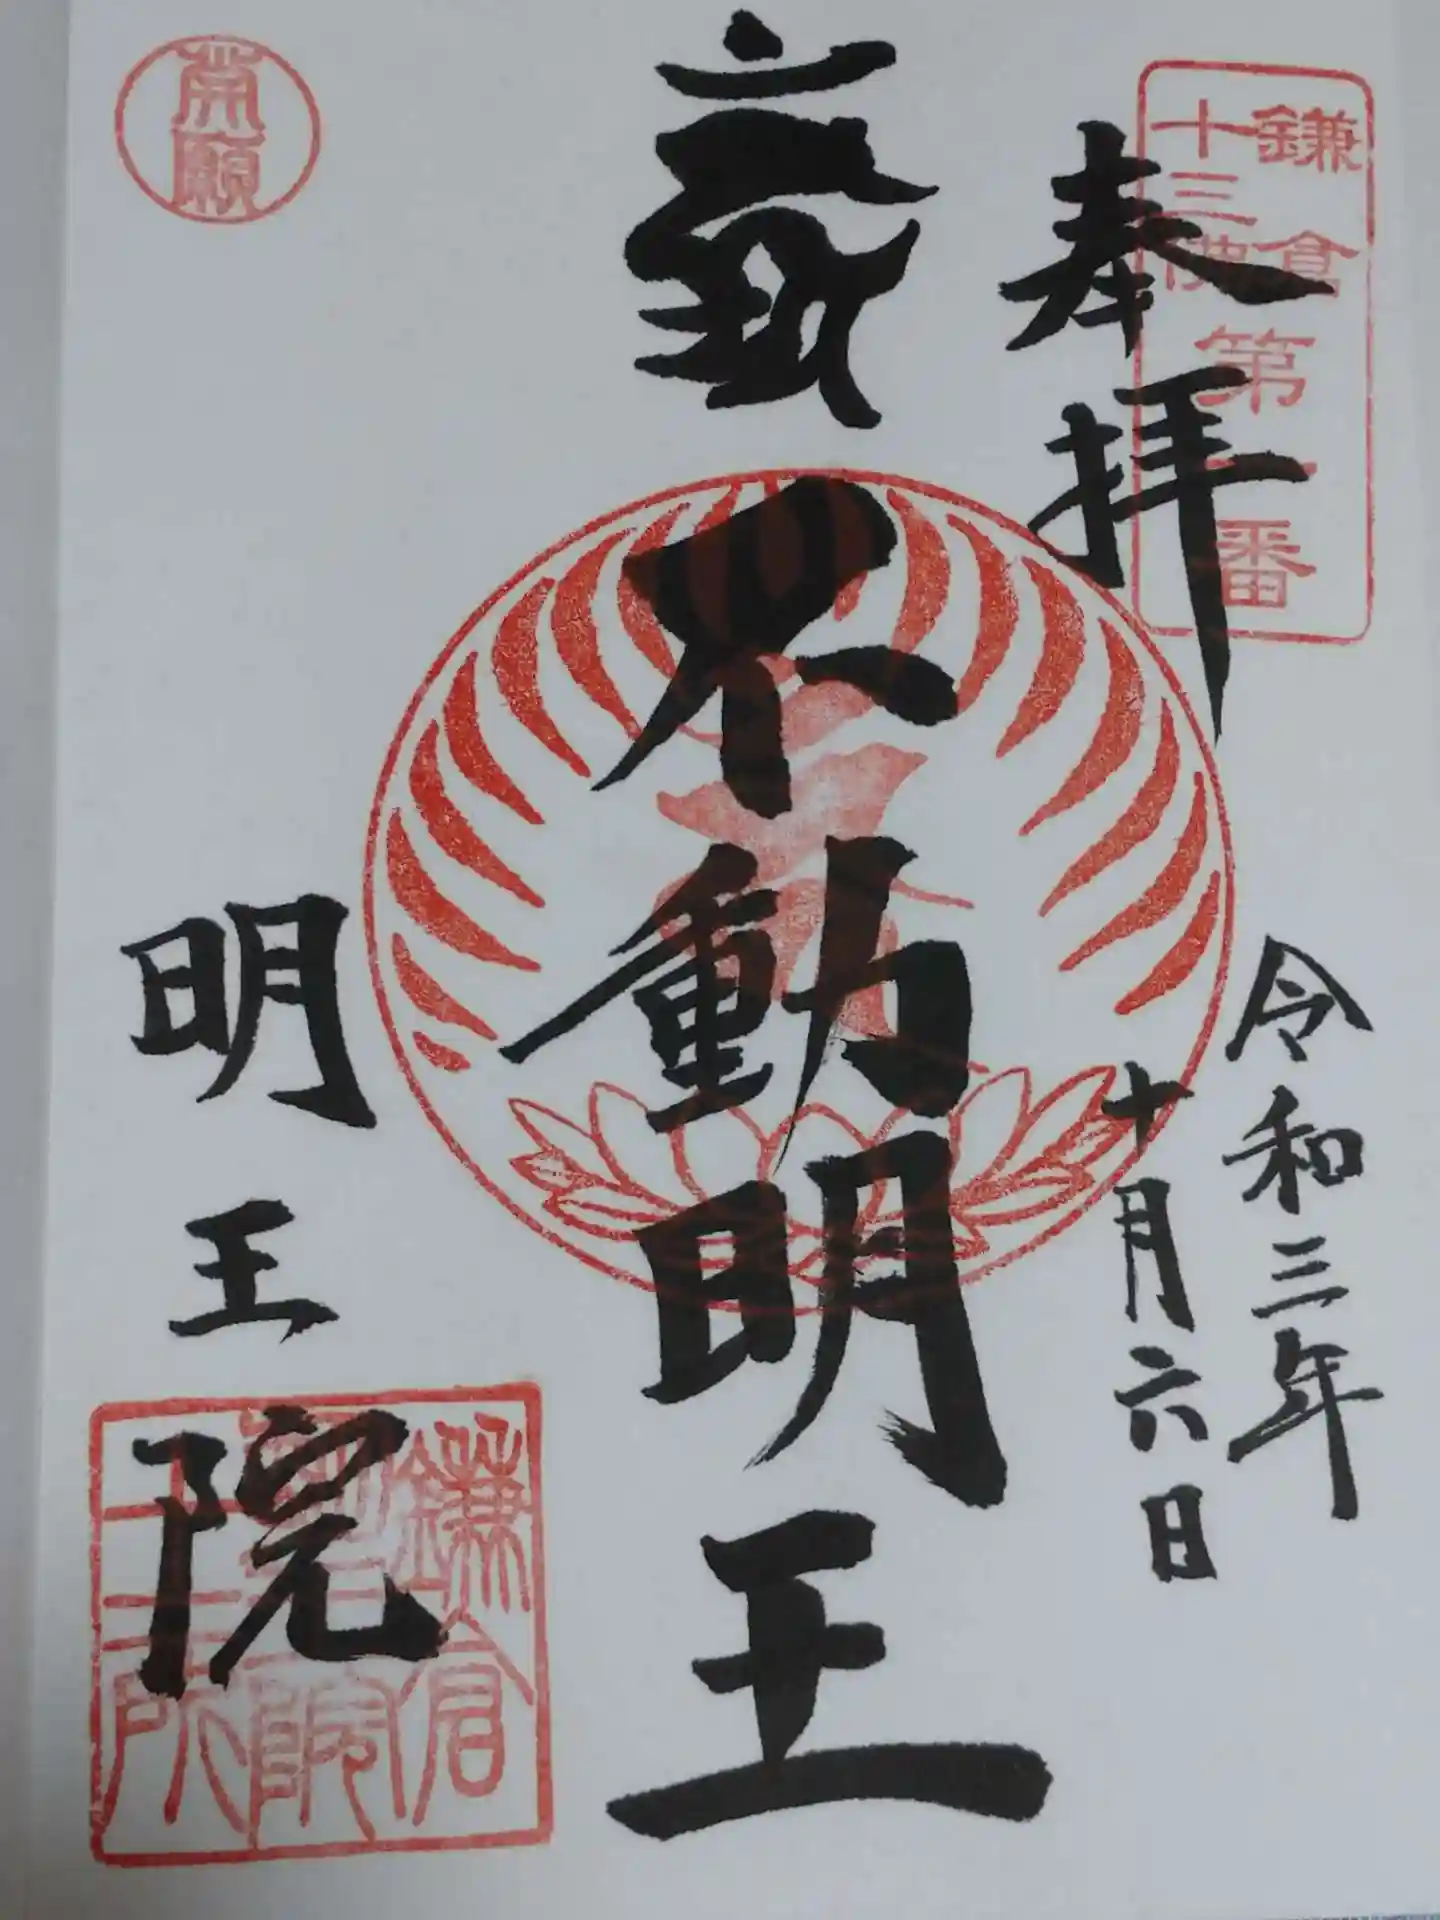 鎌倉
十三佛
第一番
奉拝
令和三年
十月六日
不動明王
明王院
鎌倉
十三所